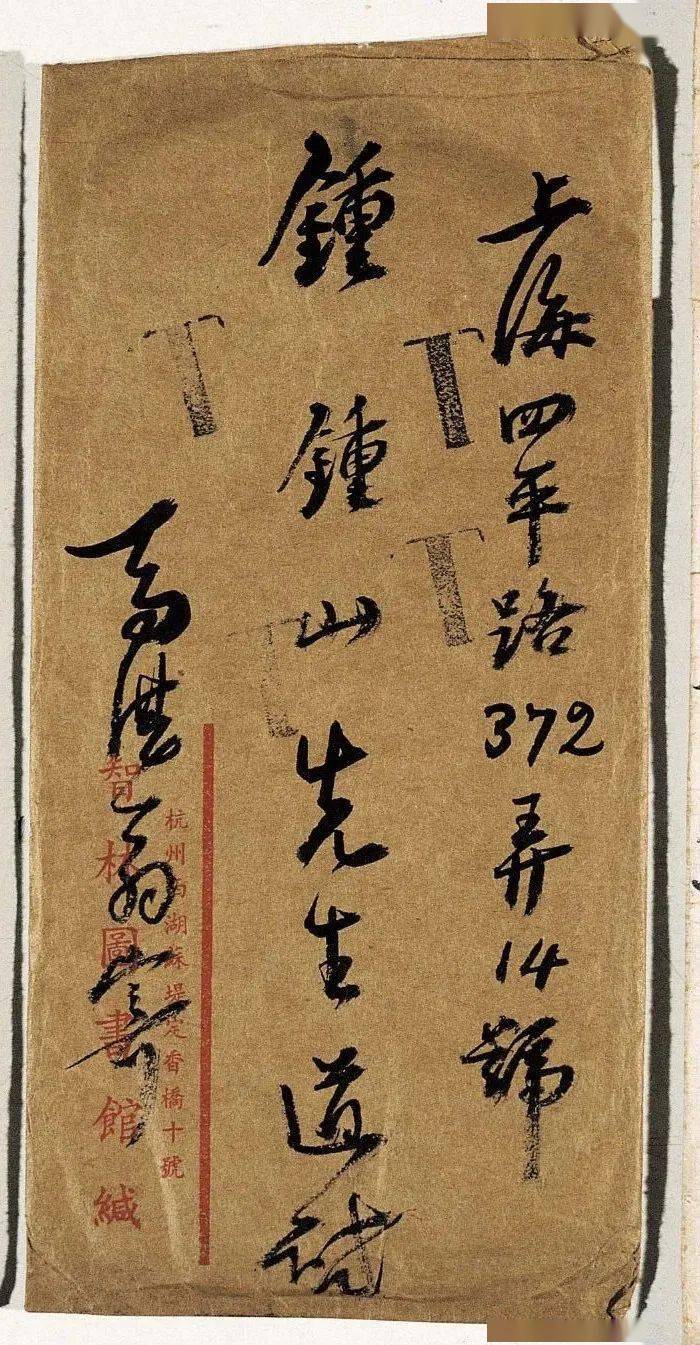 上海四平路372弄14號
鍾鍾山先生道啟
杭州西湖蘇堤定香橋十號
智林圖書館緘
馬湛翁寄
T
T
T
T